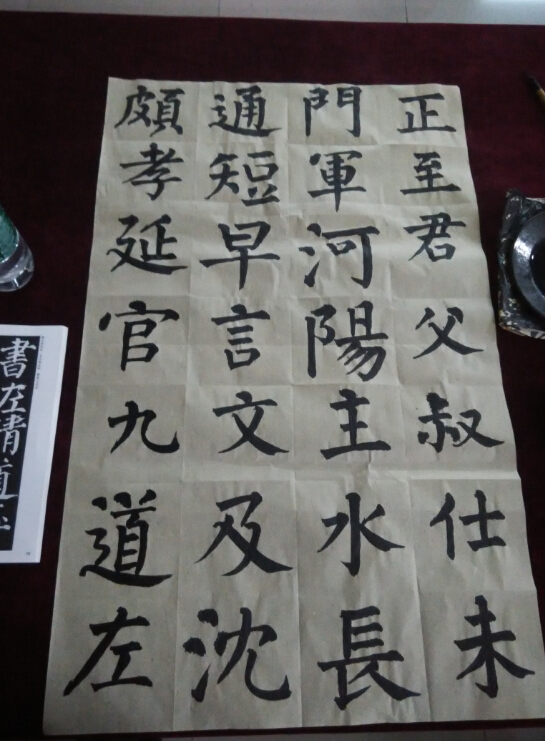 正至君父叔仕未
門軍河陽主水長
通短早言文及沈
頗孝延官九道左
書左清道